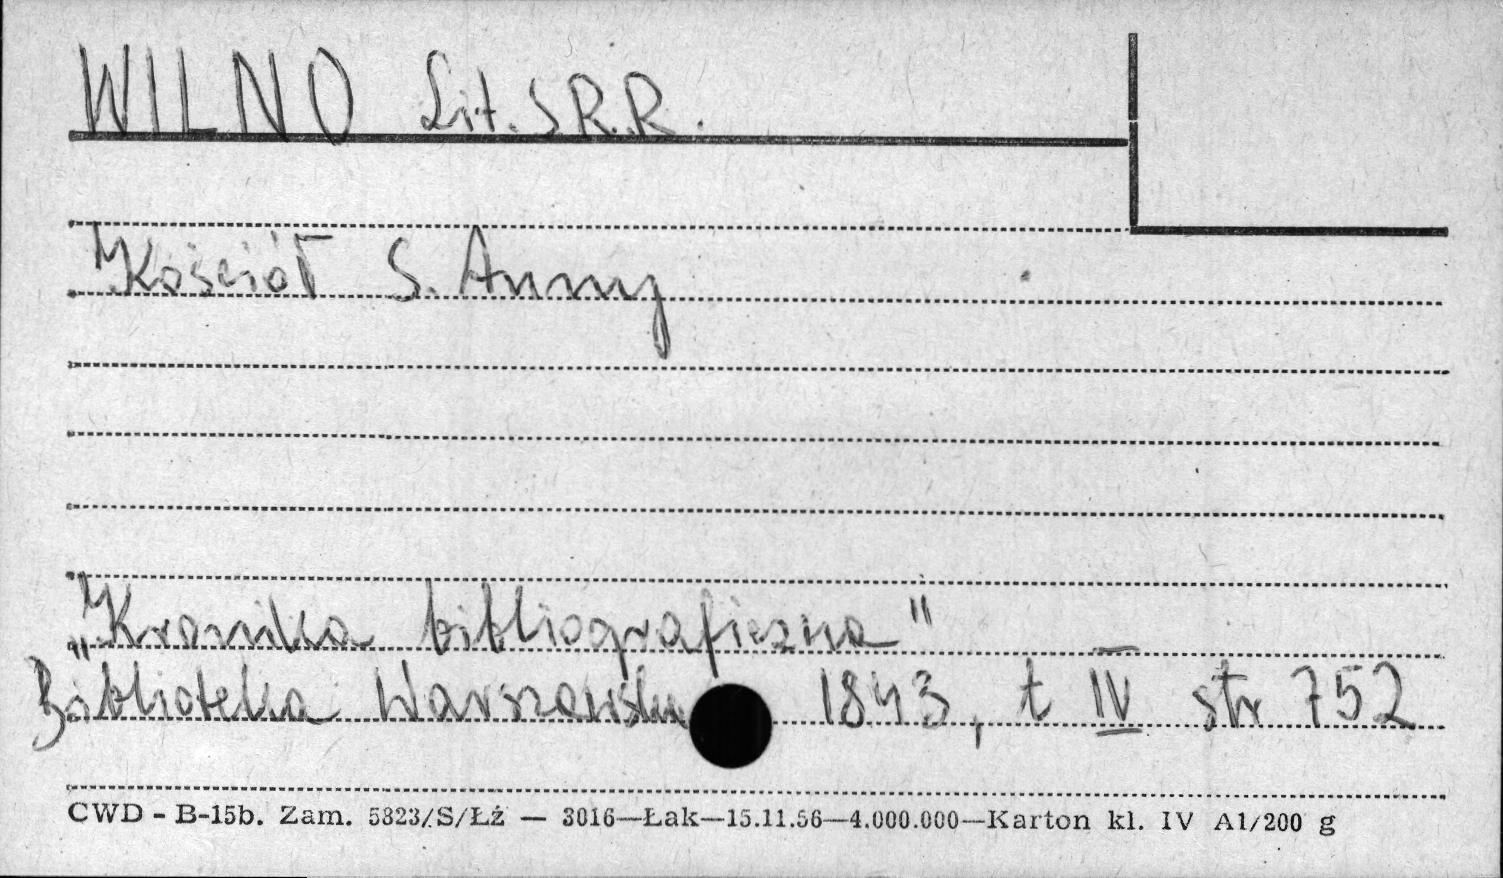 WILNO Lit. S.R.R.
Kościół S. Anny
„Kronika bibliograficzna"
Biblioteka Warszawska 1843, t IV str 752
CWD - B-15b. Zam. 5823/S/Łź — 3016—Łak—15.11.56—4.000.000—Karton kl. IV A1/200 g